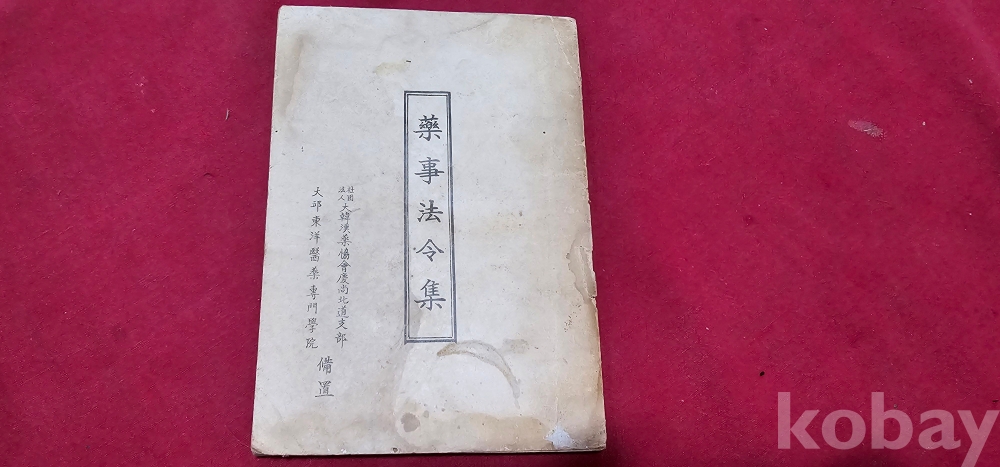 藥事法令集
社團法人 大韓漢藥協會慶尙北道支部
大邱東洋醫藥專門學院
備置
kobay